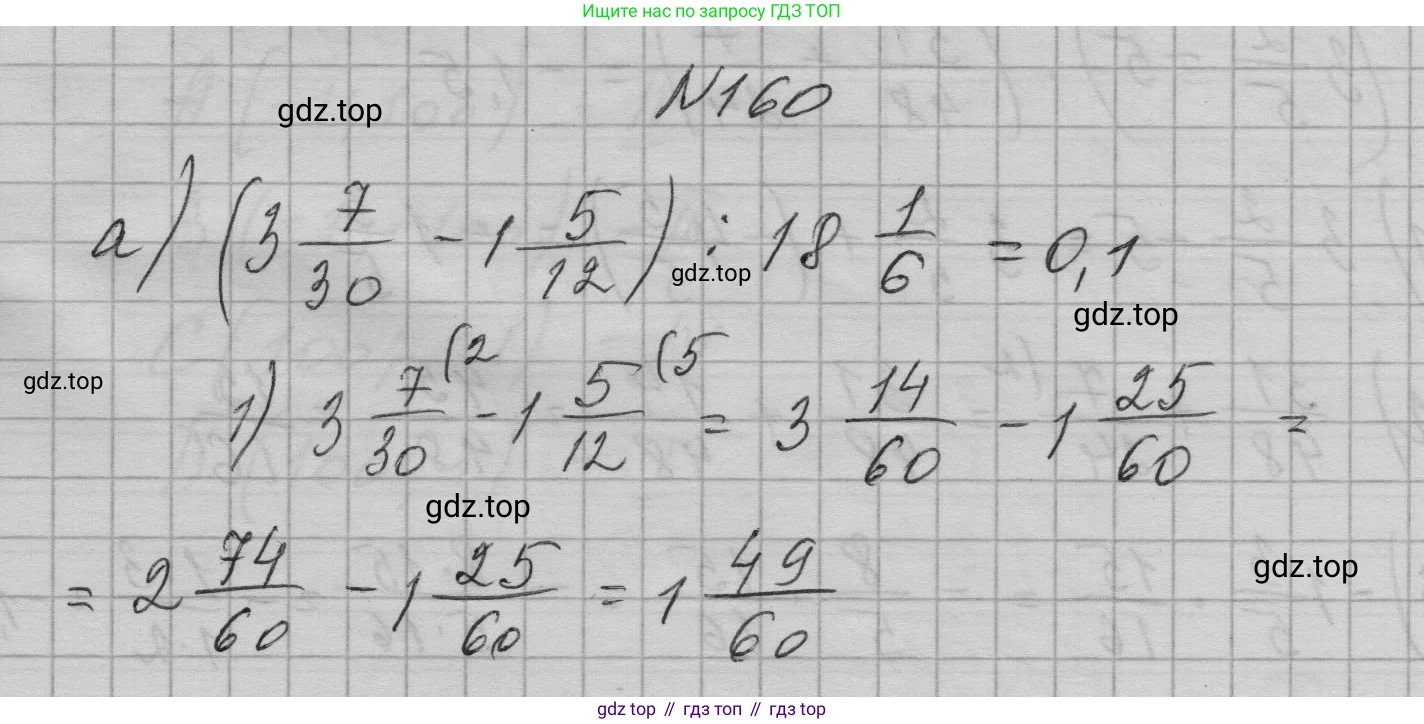 Ищите нас по запросу ГДЗ ТОП
N160
gdz.top
а) (3 7/30 - 1 5/12) : 18 1/6 = 0,1
gdz.top
gdz.top
gdz.top
1) 3 7/30 (2 - 1 5/12 (5 = 3 14/60 - 1 25/60 =
gdz.top
= 2 74/60 - 1 25/60 = 1 49/60
gdz.top
gdz top // гдз топ // гдз top